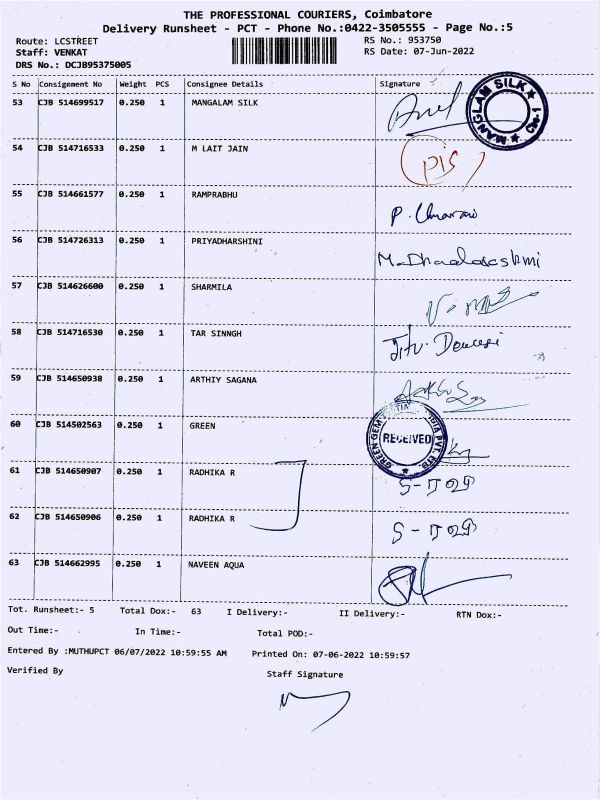 THE PROFESSIONAL COURIERS, Coimbatore
Delivery Runsheet - PCT - Phone No.:0422-3505555 - Page No.:5
Route: LCSTREET
RS No.: 953750
Staff: VENKAT
RS Date: 07-Jun-2022
DRS No.: DCJB95375005
S No Consignment No Weight PCS Consignee Details Signature
53 CJB 514699517 0.250 1 MANGALAM SILK
MANGLAM SILK ★ Cbe-1 ★
54 CJB 514716533 0.250 1 M LAIT JAIN
55 CJB 514661577 0.250 1 RAMPRABHU
56 CJB 514726313 0.250 1 PRIYADHARSHINI
57 CJB 514626600 0.250 1 SHARMILA
58 CJB 514716530 0.250 1 TAR SINNGH
59 CJB 514650938 0.250 1 ARTHIY SAGANA
60 CJB 514502563 0.250 1 GREEN
RECEIVED
61 CJB 514650907 0.250 1 RADHIKA R
62 CJB 514650906 0.250 1 RADHIKA R
63 CJB 514662995 0.250 1 NAVEEN AQUA
Tot. Runsheet:- 5 Total Dox:- 63 I Delivery:- II Delivery:- RTN Dox:-
Out Time:- In Time:- Total POD:-
Entered By :MUTHUPCT 06/07/2022 10:59:55 AM Printed On: 07-06-2022 10:59:57
Verified By Staff Signature